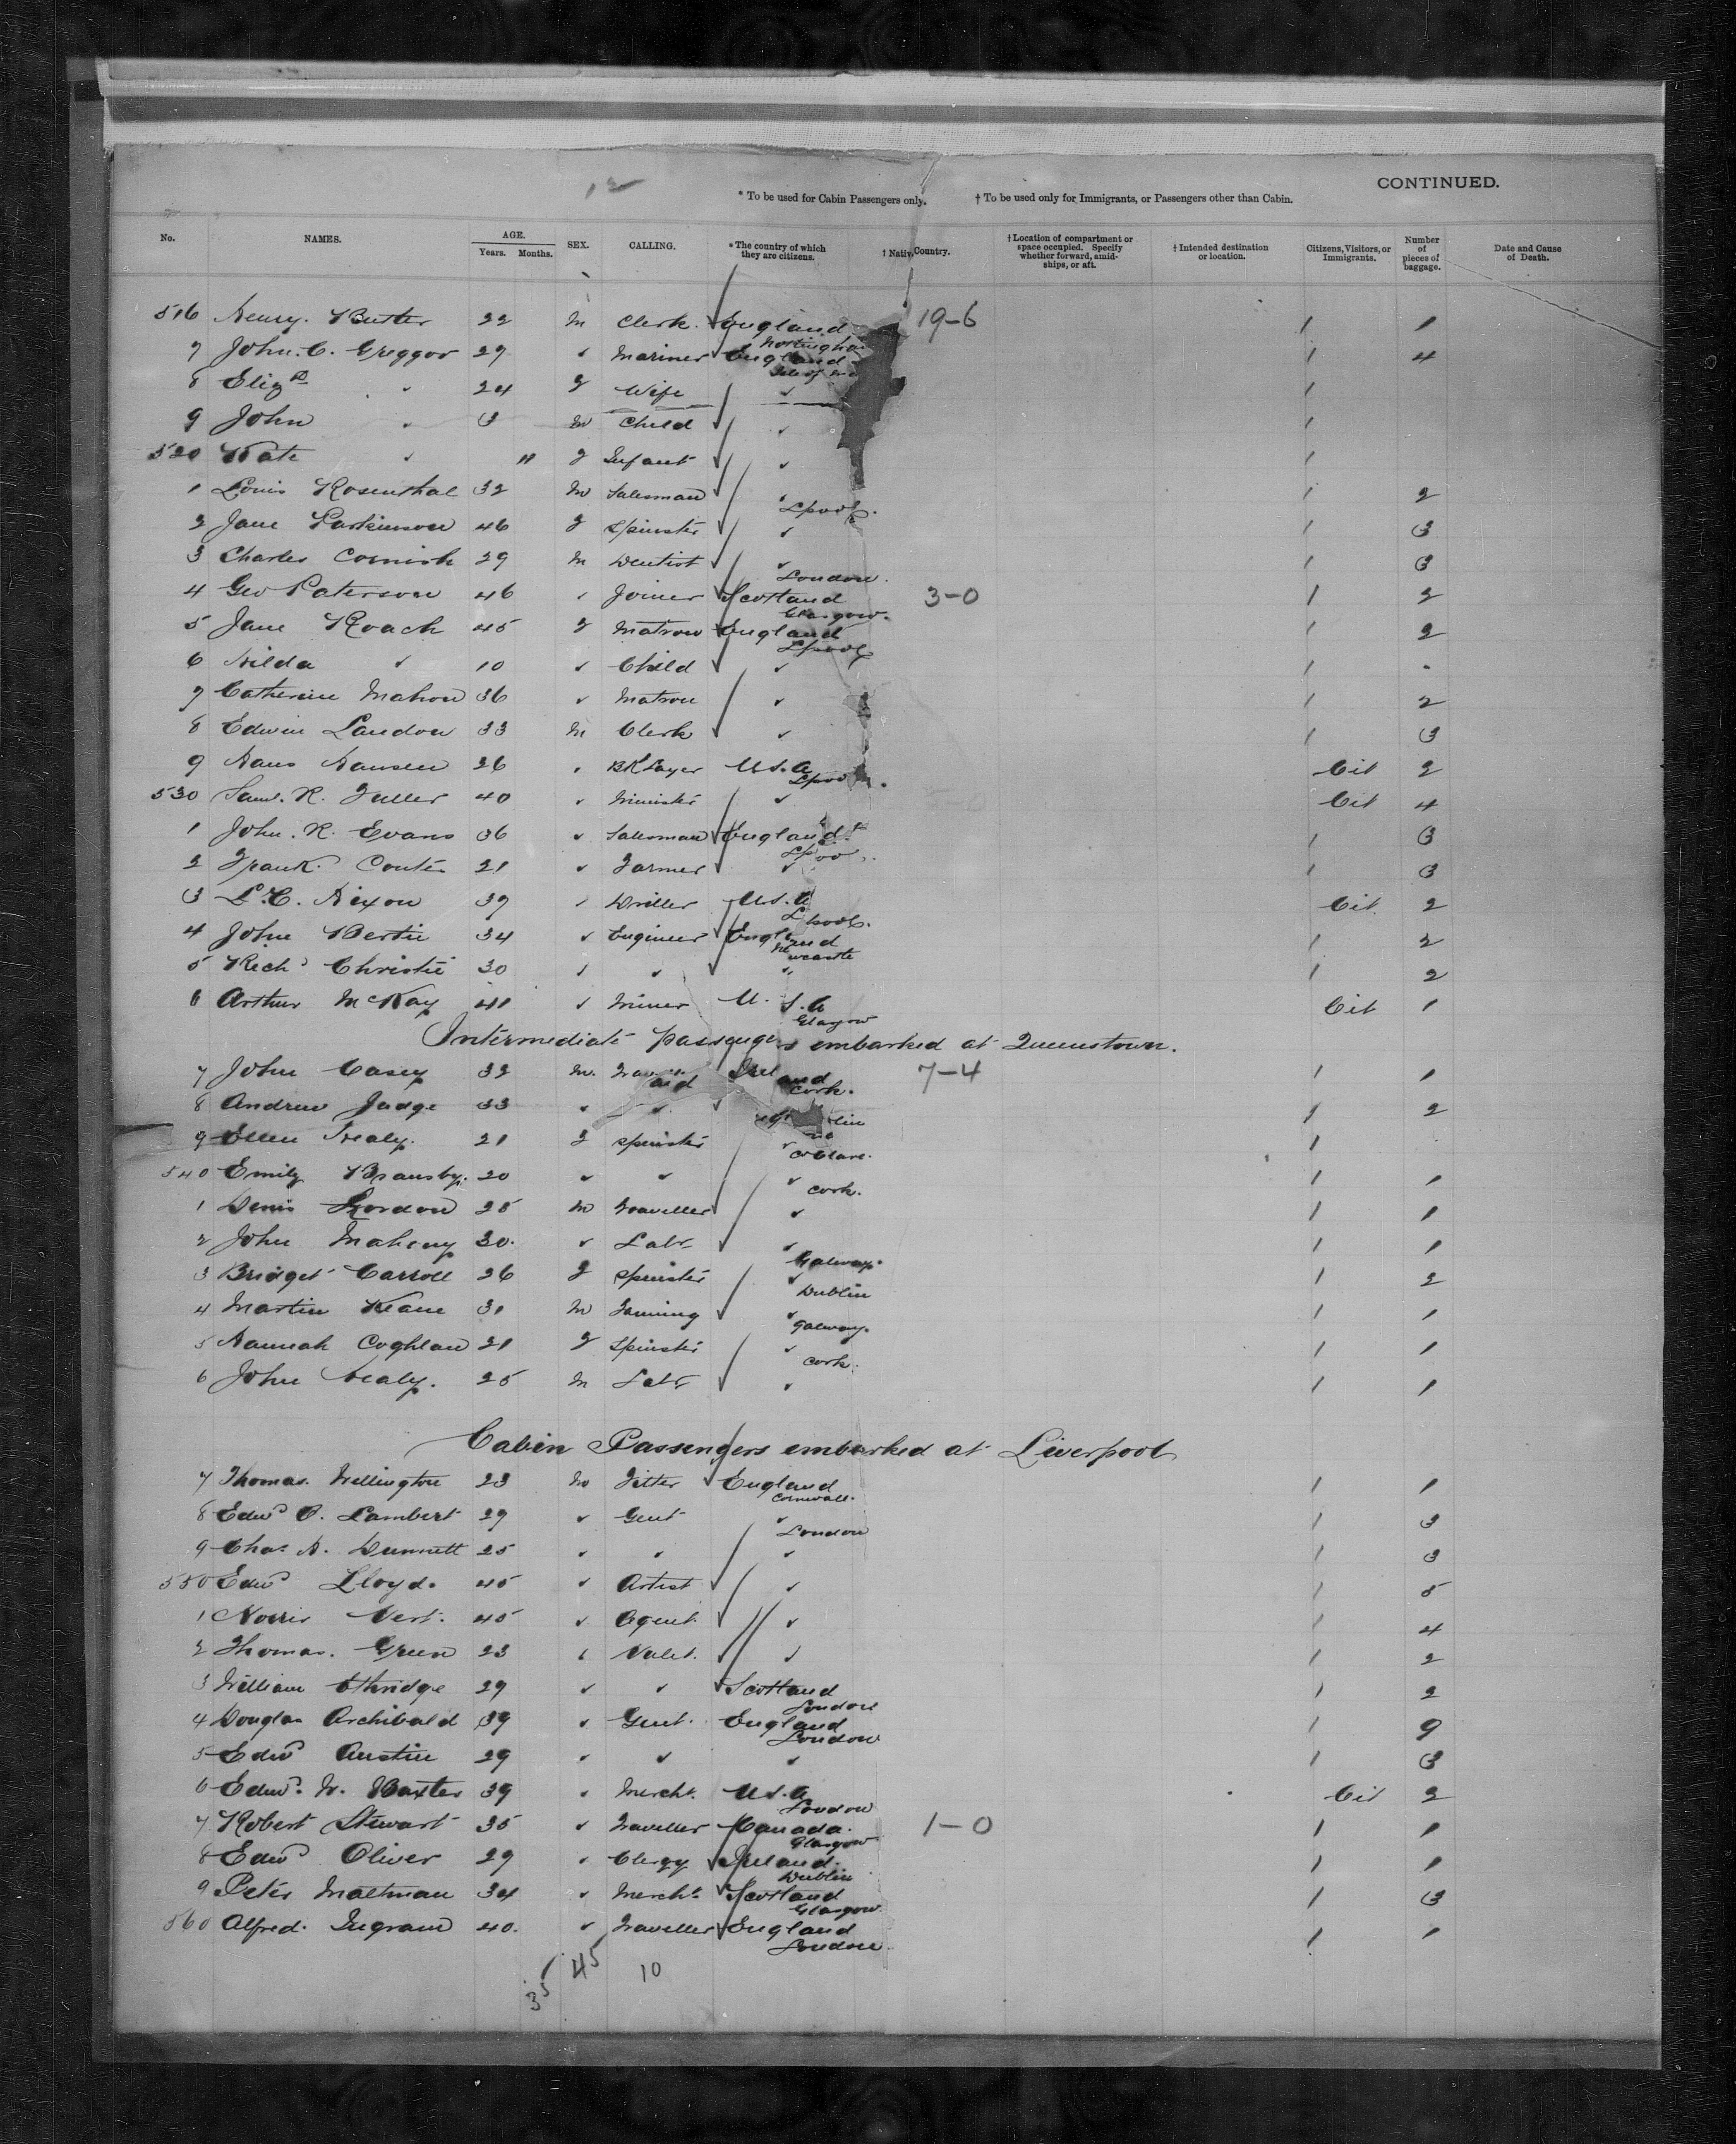 12
CONTINUED.
* To be used for Cabin Passengers only. † To be used only for Immigrants, or Passengers other than Cabin.
No. NAMES. AGE. Years. Months. SEX. CALLING. * The country of which they are citizens. † Nativ. Country. † Location of compartment or space occupied. Specify whether forward, amid-ships, or aft. † Intended destination or location. Citizens, Visitors, or Immigrants. Number of pieces of baggage. Date and Cause of Death.
516 Henry. Butler 22 M Clerk. England 19-6 1 1
Nottingha
7 John. C. Greggor 29 ✓ Mariner England 1 4
Isle of
8 Eliz ✓ 24 F Wife ✓ 1
9 John ✓ 3 M Child ✓ 1
520 Kate ✓ 11 F Infant ✓ 1
1 Louis Rosenthal 32 M Salesman ✓ 1 2
Lpool.
2 Jane Parkinson 46 F Spinster ✓ 1 3
3 Charles Cornish 29 M Dentist ✓ 1 3
London.
4 Geo Paterson 46 ✓ Joiner Scotland 3-0 1 2
Glasgow.
5 Jane Roach 45 F Matron England 1 2
Lpool
6 Hilda ✓ 10 ✓ Child ✓ 1 .
7 Catherine Mahon 36 ✓ Matron ✓ 1 2
8 Edwin Landon 33 M Clerk ✓ 1 3
9 Hans Hansen 26 ✓ BKLayer U.S.A Cit 2
Lpoo
530 Saml. R. Fuller 40 ✓ Minister ✓ Cit 4
1 John. R. Evans 36 ✓ Salesman England 1 3
Lpoo
2 Frank. 21 ✓ Farmer ✓ 1 3
3 L. C. Nixon 39 ✓ Driller U.S.A Cit. 2
Lpool.
4 John Bertie 34 ✓ Engineer England 1 2
Newcastle
5 Richd Christie 30 ✓ ✓ " 1 2
6 Arthur McKay 41 ✓ Miner U. S. A Cit 1
Glasgow
Intermediate passengers embarked at Queenstown.
7 John Casey 32 M. Ireland 7-4 1 1
Cork.
8 Andrew Judge 33 ✓ ✓ ✓ 1 2
lin
9 Ellen Healy. 21 F Spinster ✓ 1
Co Clare.
540 Emily Bransby. 20 ✓ ✓ ✓ 1 1
Cork.
1 Denis Riordon 25 M Traveller ✓ 1 1
2 John Mahony 30. ✓ Labr ✓ 1 1
Galway.
3 Bridget Carroll 26 F Spinster ✓ 1 2
Dublin
4 Martin Keane 31 M Farming ✓ 1 1
Galway.
5 Hannah Coghlan 21 F Spinster ✓ 1 1
Cork.
6 John Healy. 25 M Labr ✓ 1 1
Cabin Passengers embarked at Liverpool
7 Thomas. Wellington 23 M Fitter England 1 1
Cornwall.
8 Edwd C. Lambert 29 ✓ Gent ✓ 1 3
London
9 Chas. H. Dunnett 25 ✓ ✓ ✓ 1 3
550 Edwd Lloyd. 45 ✓ Artist ✓ 1 5
1 Norris Vert. 45 ✓ Agent. ✓ 1 4
2 Thomas. Green 23 ✓ Valet. ✓ 1 2
3 William Ethridge 29 ✓ ✓ Scotland 1 2
London
4 Douglas Archibald 39 ✓ Gent. England 1 9
London
5 Edwd Austin 29 ✓ ✓ ✓ 1 3
6 Edwd. W. Baxter 39 ✓ Mercht. U.S.A Cit 2
London
7 Robert Stewart 35 ✓ Traveller Canada. 1-0 1 1
Glasgow
8 Edwd Oliver 29 ✓ Clergy Ireland. 1 1
Dublin
9 Peter Maltman 34 ✓ Mercht. Scotland 1 3
Glasgow
560 Alfred. Ingram 40. ✓ Traveller England 1 1
London.
35 45 10